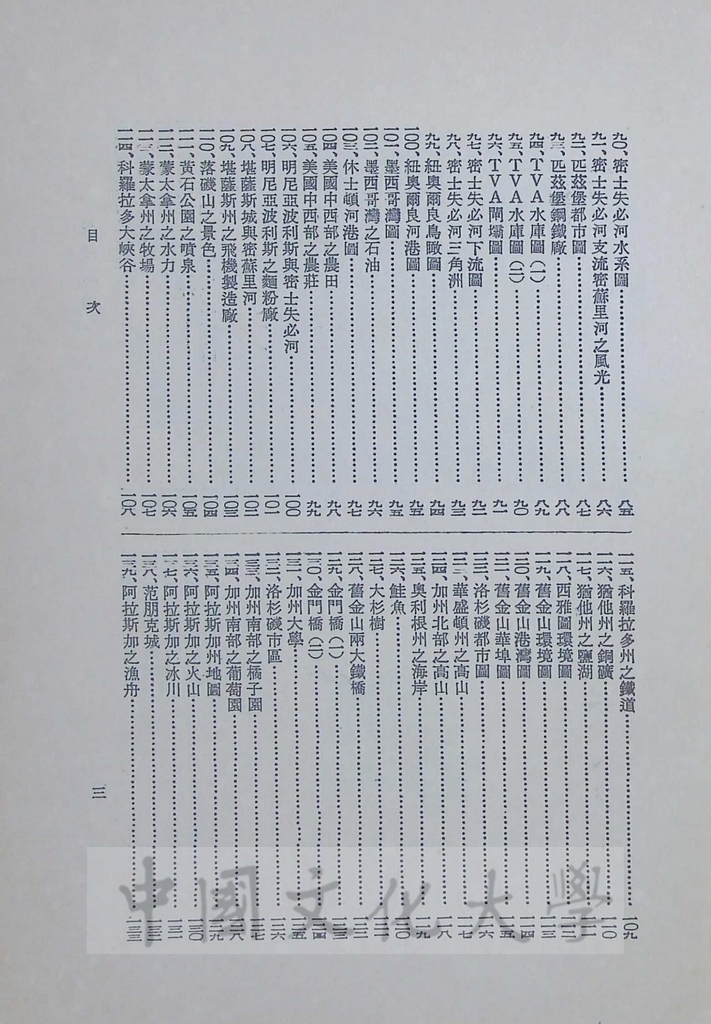 九〇、密士失必河水系圖……八五
九一、密士失必河支流密蘇里河之風光……八六
九二、匹茲堡都市圖……八七
九三、匹茲堡鋼鐵廠……八八
九四、TVA水庫圖(一)……八九
九五、TVA水庫圖(二)……九〇
九六、TVA閘壩圖……九一
九七、密士失必河下流圖……九二
九八、密士失必河三角洲……九三
九九、紐奧爾良鳥瞰圖……九四
一〇〇、紐奧爾良河港圖……九五
一〇一、墨西哥灣圖……九五
一〇二、墨西哥灣之石油……九六
一〇三、休士頓河港圖……九七
一〇四、美國中西部之農田……九八
一〇五、美國中西部之農莊……九九
一〇六、明尼亞波利斯與密士失必河……一〇〇
一〇七、明尼亞波利斯之麵粉廠……一〇一
一〇八、堪薩斯城與密蘇里河……一〇二
一〇九、堪薩斯州之飛機製造廠……一〇三
一一〇、落磯山之景色……一〇四
一一一、黃石公園之噴泉……一〇五
一一二、蒙太拿州之水力……一〇六
一一三、蒙太拿州之牧場……一〇七
一一四、科羅拉多大峽谷……一〇八
一一五、科羅拉多州之鐵道……一〇九
一一六、猶他州之銅礦……一一〇
一一七、猶他州之鹽湖……一一一
一一八、西雅圖環境圖……一一二
一一九、舊金山環境圖……一一三
一二〇、舊金山港灣圖……一一四
一二一、舊金山華埠圖……一一五
一二二、洛杉磯都市圖……一一六
一二三、華盛頓州之高山……一一七
一二四、加州北部之高山……一一八
一二五、奧利根州之海岸……一一九
一二六、鮭魚……一二〇
一二七、大杉樹……一二一
一二八、舊金山兩大鐵橋……一二二
一二九、金門橋(一)……一二三
一三〇、金門橋(二)……一二四
一三一、加州大學……一二五
一三二、洛杉磯市區……一二六
一三三、加州南部之橘子園……一二七
一三四、加州南部之葡萄園……一二八
一三五、阿拉斯加州地圖……一二九
一三六、阿拉斯加之火山……一三〇
一三七、阿拉斯加之冰川……一三一
一三八、范朋克城……一三二
一三九、阿拉斯加之漁舟……一三三
目次
三
中國文化大學